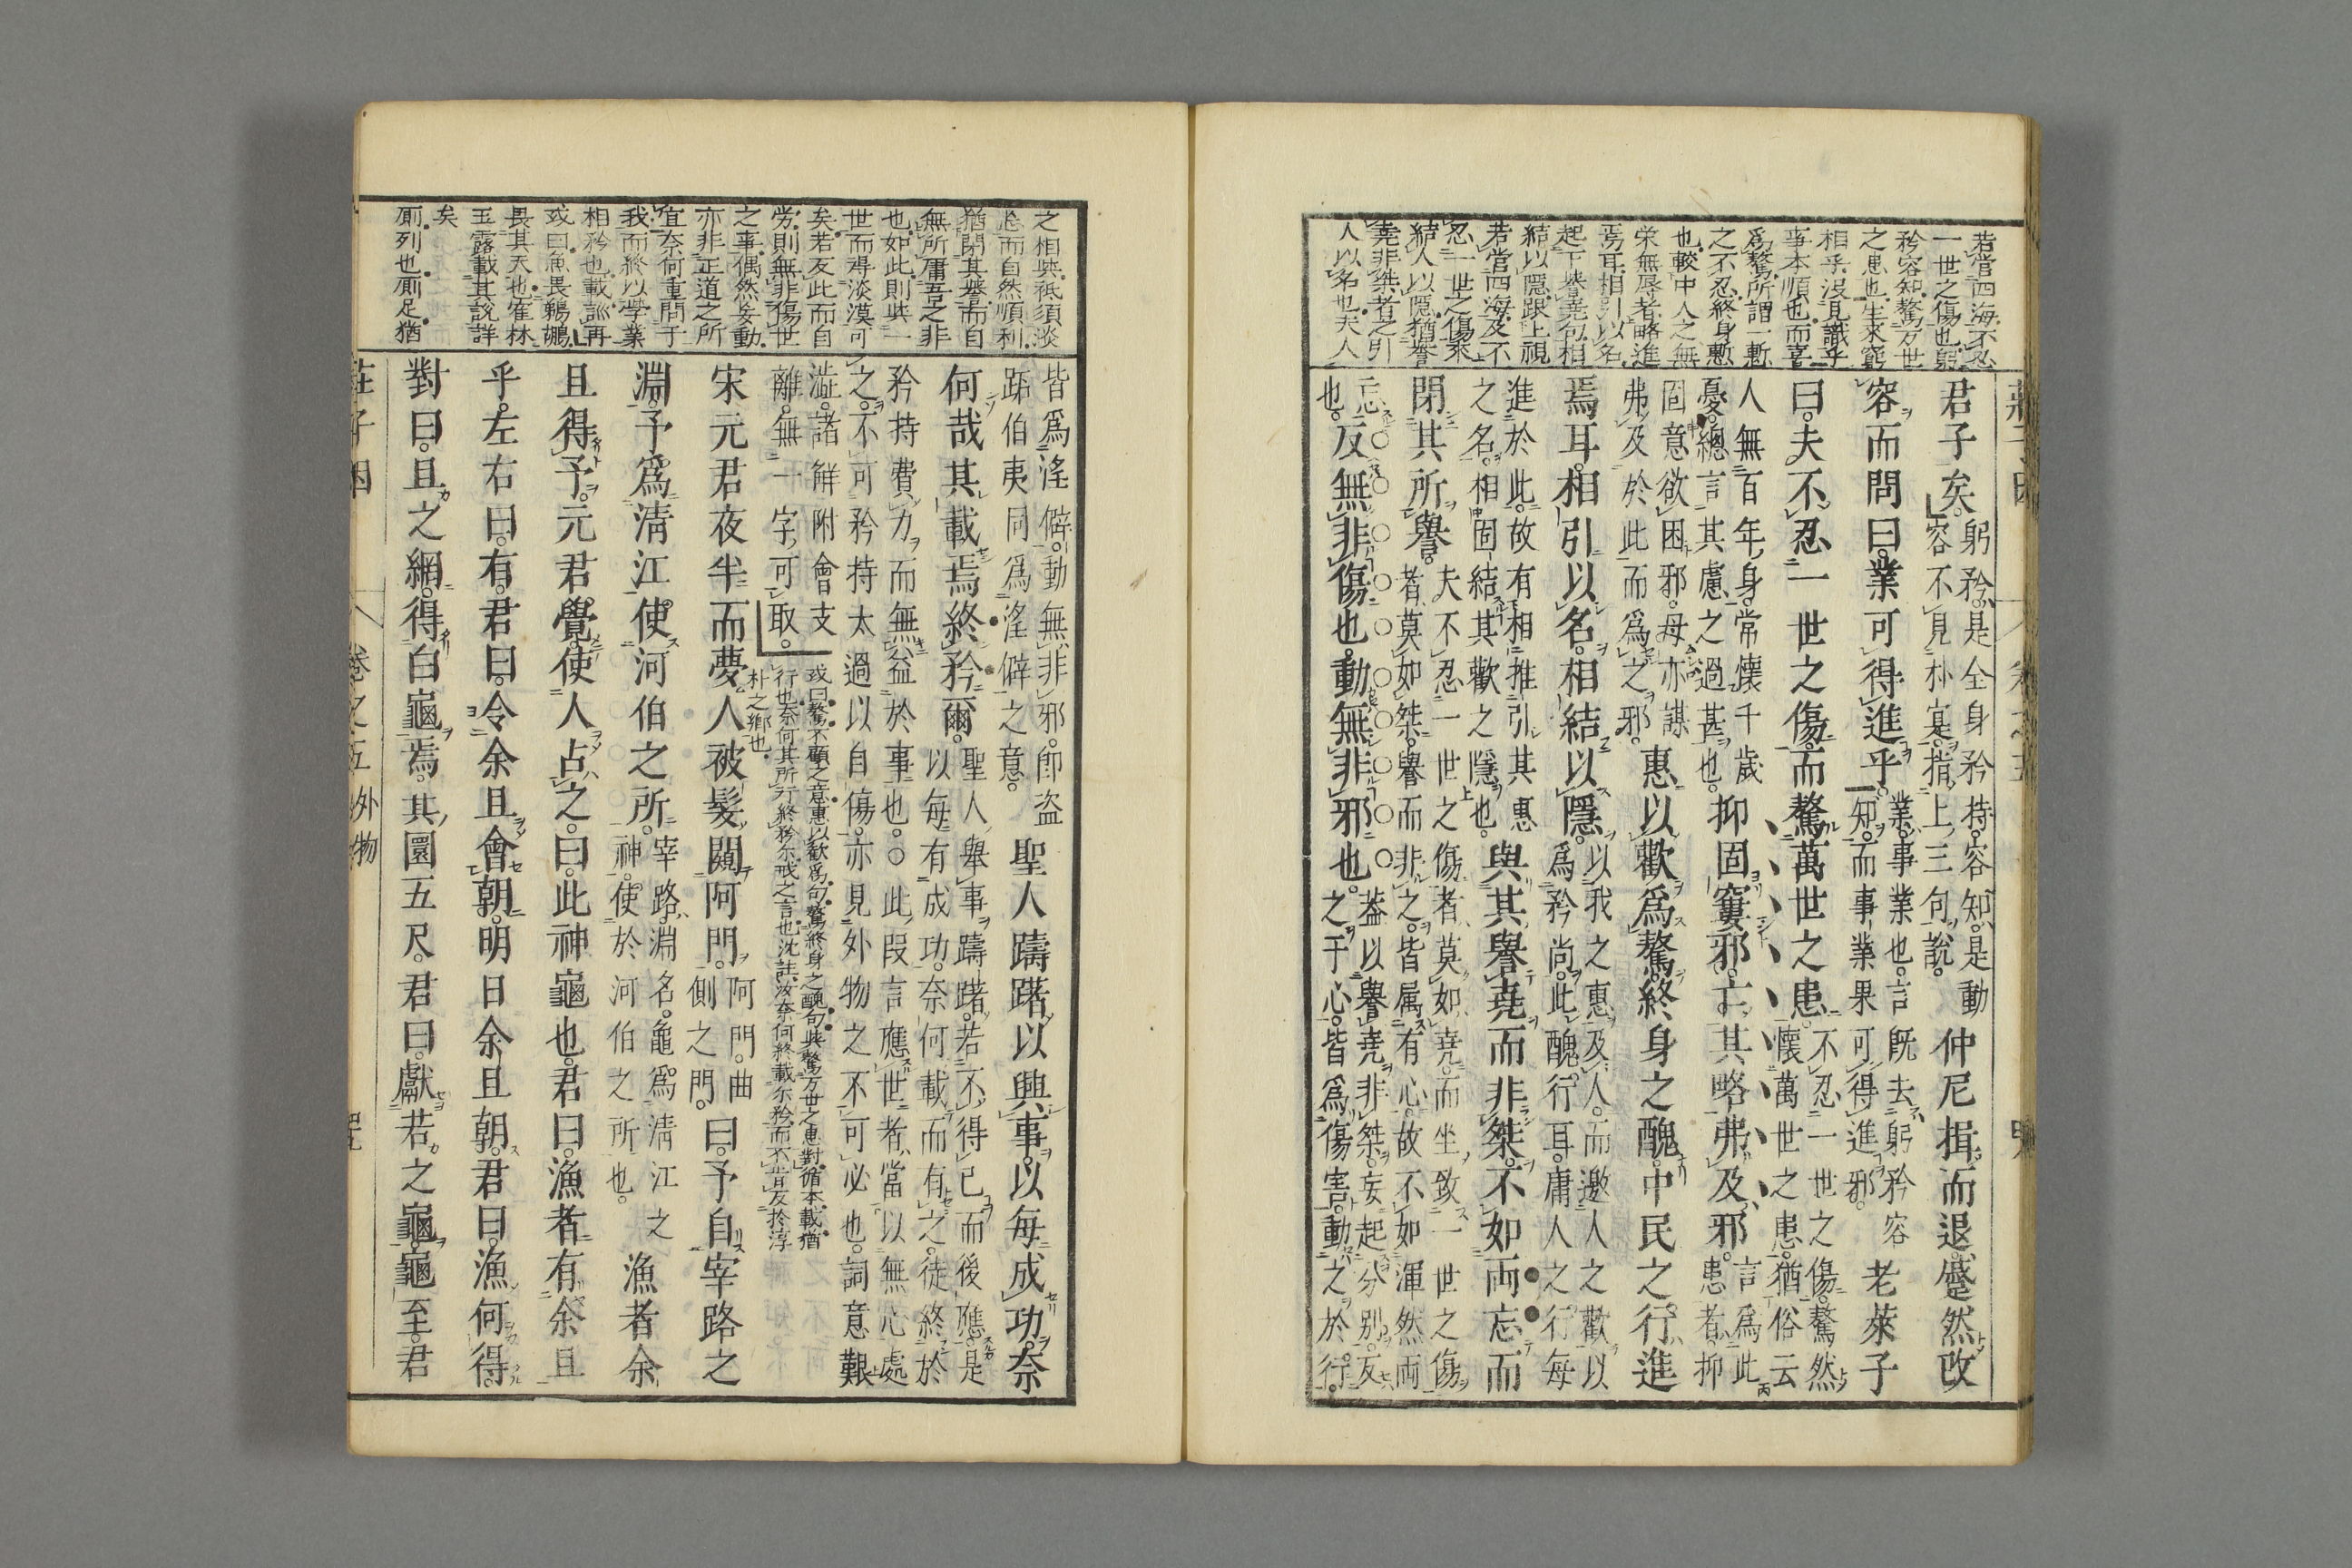 若當四海不忍
一世之傷也躬
矜容知驁万世
之患也生來窮
相乎沒見識乎
事本順也而喜
爲驁所謂一慙
之不忍終身慙
也較中人之無
榮無辱者略進
焉耳相引以名
結以隱跟上視
起下譽堯句相
若當四海及不
忍一世之傷來
結人以隱猶譽
堯非桀者之引
人以名也夫人
君子矣
躬矜是全身矜持容知是動
容不見朴寔指上三句說
仲尼揖而退蹙然改
容而問曰業可得進乎
業事業也言既去躬矜容
知而事業果可得進邪
老萊子
曰夫不忍一世之傷而驁萬世之患
不忍一世之傷驁然
懷萬世之患猶俗云
人無百年身常懷千歲
憂總言其慮之過甚也
抑固窶邪亡其略弗及邪
言爲此
患者抑
固意欲困邪毋亦謀
弗及於此而爲之邪
惠以歡爲驁終身之醜中民之行進
焉耳相引以名相結以隱
以我之惠及人而邀人之歡以
爲矜尚此醜行耳庸人之行每
進於此故有相推引其惠
之名相固結其歡之隱也
與其譽堯而非桀不如両忘而
閉其所譽
夫不忍一世之傷者莫如堯而坐致一世之傷
者莫如桀譽而非之皆属有心故不如渾然両
忘
也
反無非傷也動無非邪也
葢以譽堯非桀妄起分別反
之于心皆爲傷害動之於行
莊子因
卷之五
皆爲滛僻動無非邪卽盜
跖伯夷同爲滛僻之意
聖人躊躇以興事以每成功奈
何哉其載焉終矜爾
聖人舉事躊躇若不得已而後應是
以每有成功奈何載而有之徒終於
矜持費力而無益於事也○此叚言應世者當以無心處
之不可矜持太過以自傷亦見外物之不可必也詞意艱
澁諸觧附會支
離無一字可取
或曰驁不顧之意惠以歡爲句驁終身之醜句與驁万世之患對循本載猶
行也奈何其所行終矜尔戒之言也沈註汝奈何終載尔矜而不肯反於淳
朴之鄉也
宋元君夜半而夢人被髮闚阿門
阿門曲
側之門
曰予自宰路之
淵予爲淸江使河伯之所
宰路淵名龜爲淸江之
神使於河伯之所也
漁者余
且得予元君覺使人占之曰此神龜也君曰漁者有余且
乎左右曰有君曰令余且會朝明日余且朝君曰漁何得
對曰且之網得白龜焉其圓五尺君曰獻若之龜龜至君
之相與祗須淡
忘而自然順利
猶閉其譽而自
無所庸吾之非
也如此則與一
世而得淡漠可
矣若反此而自
勞則無非傷世
之事偶然妄動
亦非正道之所
宜奈何重問于
我而終以學業
相矜也載訟再
或曰魚畏鵜鶘
畏其天也隺林
玉露載其說詳
矣
厠列也厠足猶
莊子因
卷之五 外物